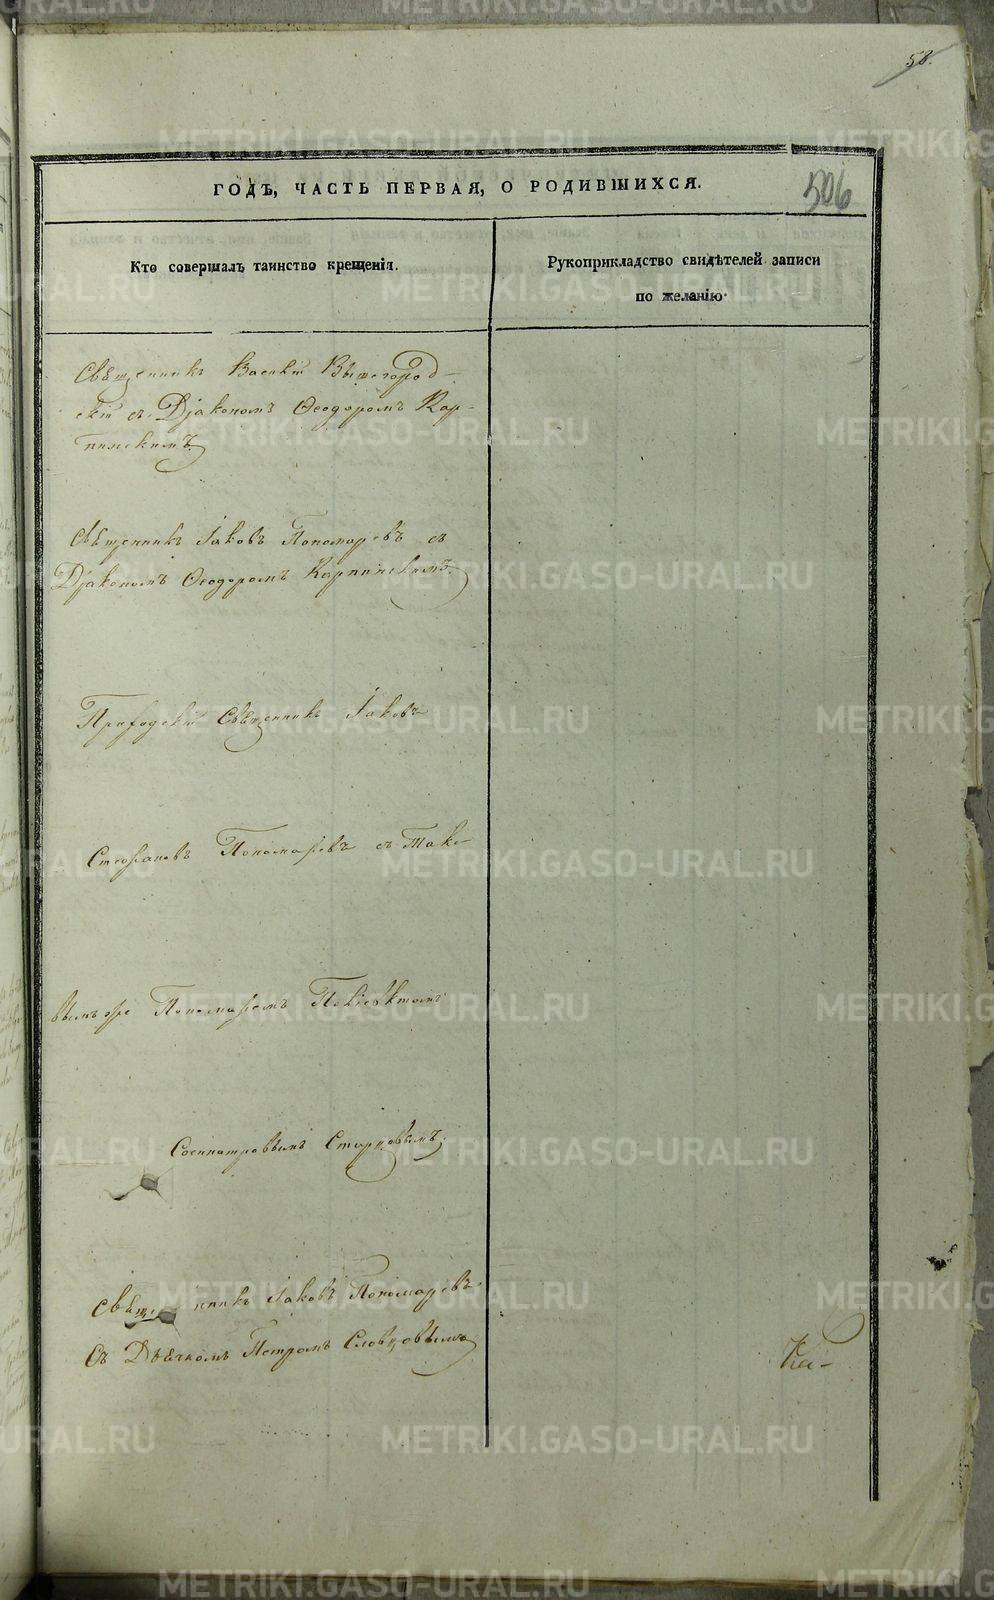 58.
ГОДЪ, ЧАСТЬ ПЕРВАЯ, О РОДИВШИХСЯ.
506
Кто совершалъ таинство крещенія.
Рукоприкладство свидѣтелей записи
по желанію
Свѣщенникъ Василій Вышегород-
скій съ Діакономъ Ѳеодоромъ Кар-
пинскимъ.
Свѣщенникъ Іаковъ Пономаревъ съ
Діакономъ Ѳеодоромъ Карпинскимъ.
Приходскій Свѣщенникъ Іаковъ
Стефановъ Пономаревъ съ Тако-
вымъ же Пономаремъ
Сосипатровымъ Старцовымъ.
Свѣщенникъ Іаковъ Пономаревъ
Съ Дьячкомъ Петромъ Словцовымъ
METRIKI.GASO-URAL.RU